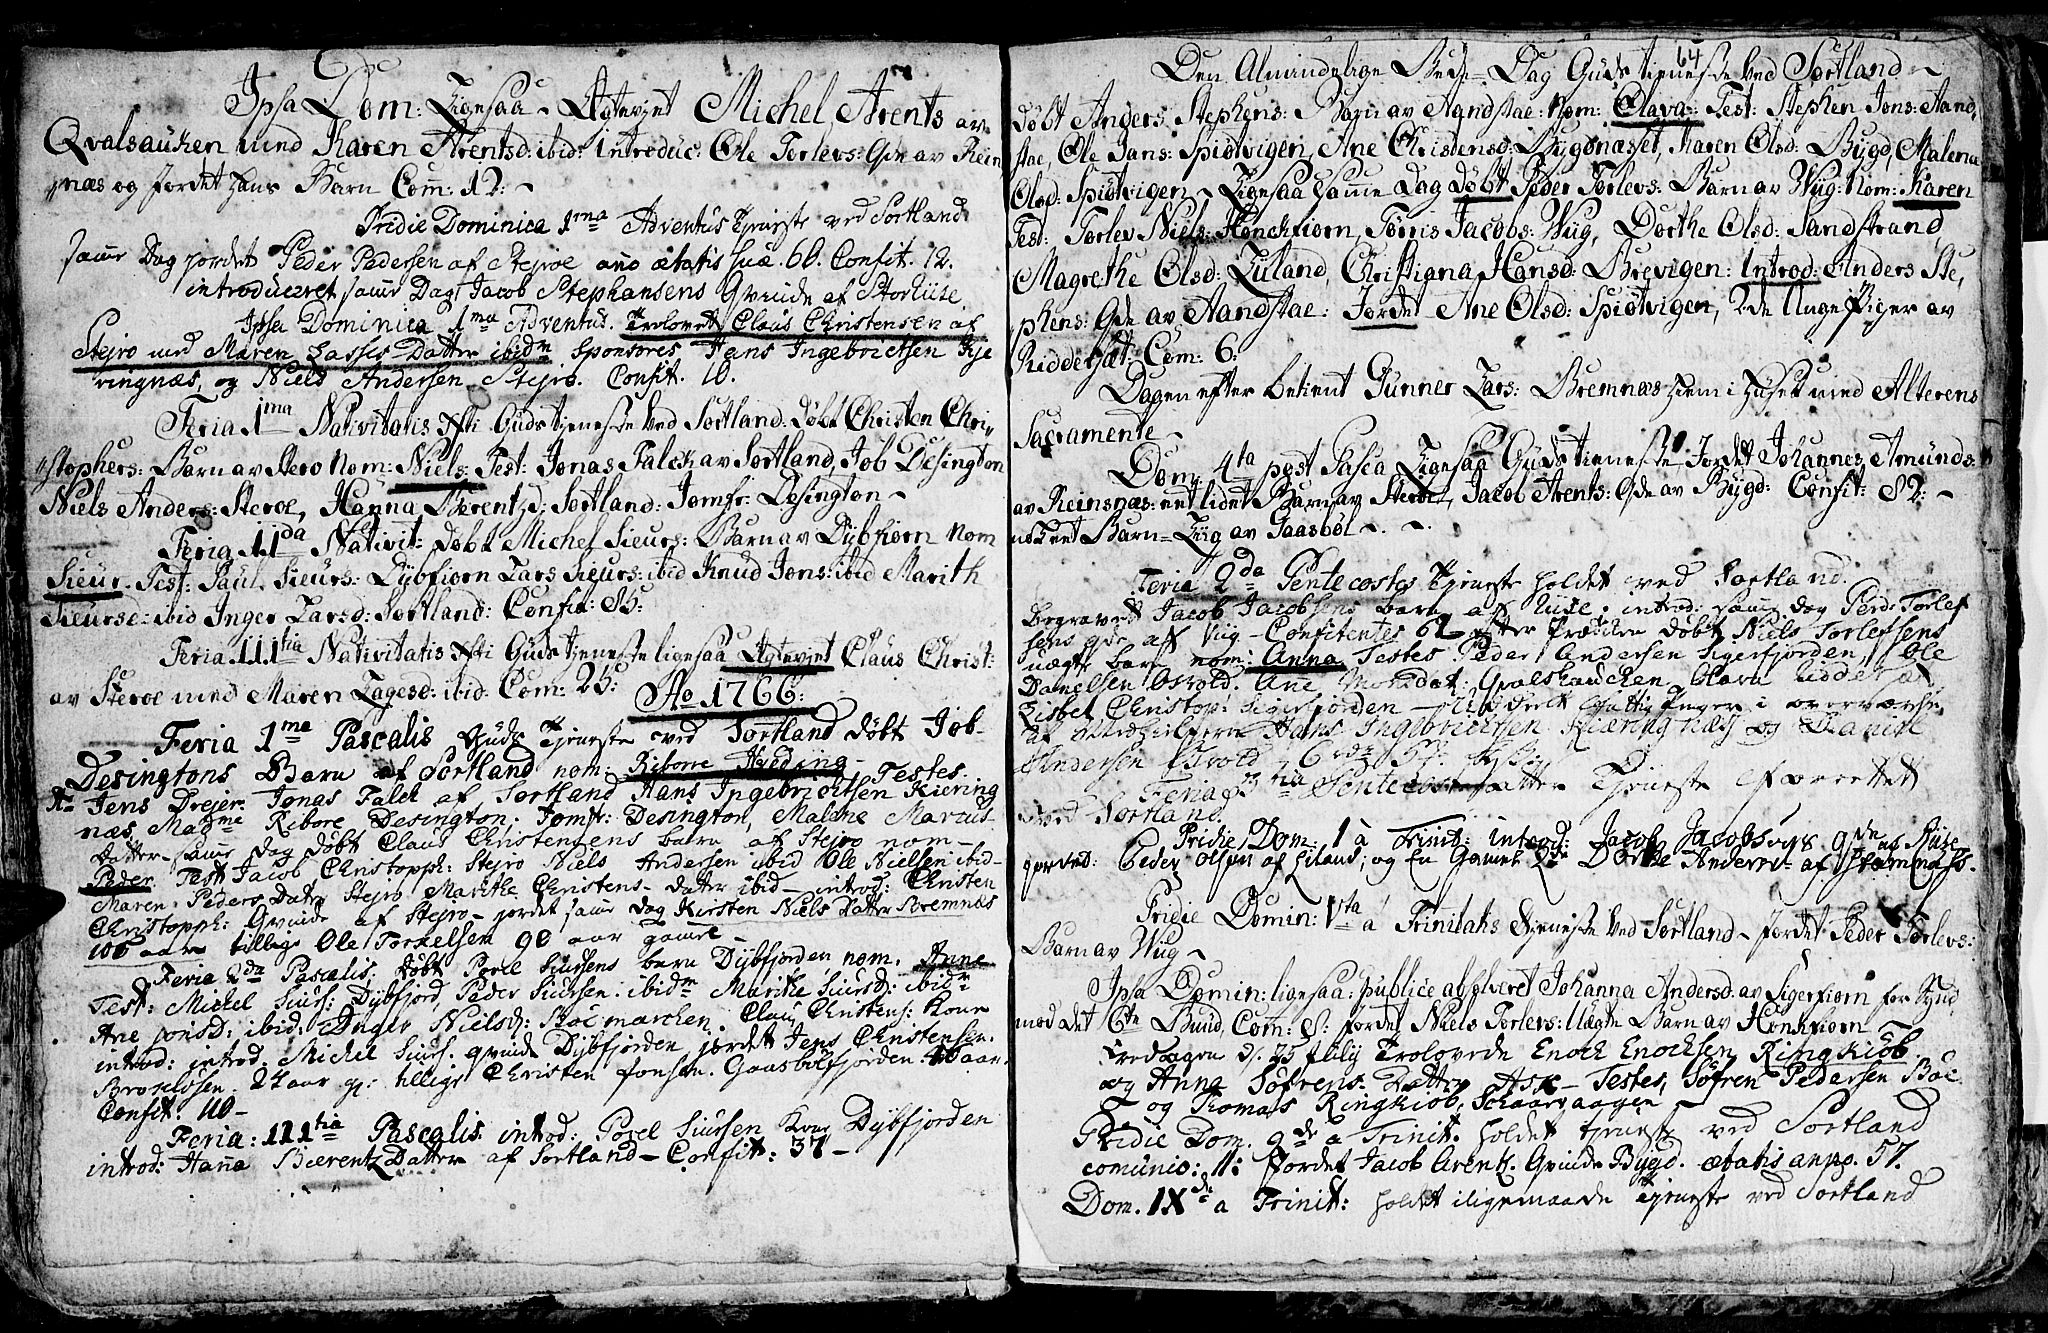 Ipsa Dom: Ligesaa Egteviet Michel Arents av
Qvalsauken med Karen Arentsd: ibid: Introduc: Ole Torlevs: Qde av Rein
næs og jordet hans Barn Com: 12:
Pridie Dominica 1ma Adventus Tjeneste ved Sortland
samme Dag jordet Peder Pedersen af Stejroe ano ætatis suæ. 60. Confit. 12.
introduceret samme Dag Jacob Stephansens Qvinde af Storliise
Ipsa Dominica 1ma Adventus. Trolovet Claus Christensen af
Stejro med Maren Lasses Datter ibidm Sponsores Hans Ingebrictsen Kje
ringnæs, og Niels Andersen Stejro. Confit. 10.
Feria 1ma Nativitatis Xsti Guds tjeneste ved Sortland: Døbt Christen Chri„
„stophers: Barn av Stero Nom: Niels: Test: Jonas Falck av Sortland, Job Desington
Niels Anders: Steroe, Hanna Berentzd: Sortland: Jomfr: Desington
Feria IIda Nativit: Døbt Michel Sieurs: Barn av Dybfiorn Nom
Sieur. Test: Paul Sieurs: Dybfiorn Lars Sieurs: ibid Knud Jons: ibid Marith
Sieursd: ibid Inger Larsd: Sortland: Confit: 85:
Feria IIItia Nativitatis Xsti Guds tjeneste ligesaa Egteviet Claus Christ:
av Steroe med Maren Lagesd: ibid: Com: 25: Ao 1766:
Feria 1ma Pascalis Guds Tjeneste ved Sortland døbt Job
Desingtons Barn af Sortland nom: Ribore Hveding
Testes.
Hr Jens Drejer. Jonas Falck af Sortland Hans Ingebrichtsen Kiering
næs, Madme Ribore Desington, Jomfr: Desington, Malene Marcus
Datter samme Dag døbt Claus Christensens barn af Stejro nom
Peder Test Jacob Christopph: Stejro Niels Andersen ibid Ole Nielsen ibid
Maren Peders Datr Stejro Marithe Christens Datter ibid introd: Christen
Christopph: Qvinde af Stejro jordet samme Dag Kirsten Niels Datter Bremnæs
106 aar tillige Ole Torkelsen 90 aar gamel
Feria 2da Pascalis, døbt Povel Siursens barn Dybfjorden nom. Anne
Test: Michel Siurs: Dybfjord, Peder Siursen ibidm Marithe Siursd: ibidm
Ane Jonsd: ibid: Inger Nielsd: Boemarchen. Claus Christens: Kone
introd: introd. Michel Siurs. qvinde Dybfjorden jordet Jens Christensen
Broxløsen. 24 aar gl: tillige Christen Jonsen. Gaasbølfjorden 40 aar.
Confit. 110
Feria: IIItia Pascalis introd: Povel Siursen Kone Dybfjorden
introd: Hanna Bærentz Datter af Sortland Confit: 37
64
Den Almindelige Bede-Dag Guds tjeneste ved Sortland
Døbt Anders Stephens: Barn av Aandstae: Nom: Olava: Test: Stephen Jons: Aand„
stae, Ole Jans: Spiotvigen, Ane Christensd: Bygdnæsset, Karen Olsd: Bygd, Malena
Olsd: Spiøtvigen Ligesaa Samme Dag Døbt Peder Torlevs: Barn av Wug: Nom: Karen
Test: Torlev Niels: Honckfiorn, Tørris Jacobs: Wug, Dorthe Olsd: Sandstrand
Magrethe Olsd: Liland, Christiana Hansd: Brevigen: Introd: Anders Ste,
phens: Qde av Aandstae: Jordet Ane Olsd: Spiotvigen, 2de Unge Piger av
Riddersæt: Com: 6:
Dagen efter betient Gunner Lars: Bremnæs hjem i Huset med Alterens
Sacramente
Dom: 4ta post Pasca Ligesaa Guds tjeneste Jordet Johannes Amunds:
av Reinsnæs: eet lidet Barn av Steroe, Jacob Arents: Qde av Bygd: Confit: 82:
nok eet Barn-Liig av Gaasbøl
Feria 2da Pentecostes Tjeneste holdet ved Sortland.
Begravet Jacob Jacobsens barn af Kiise. introd: samme dag Peder Torlef
sens qde af Vug Confitentes 62 Efter Prædiken døbt Niels Torlefsens
uægte barn nom: Anna Testes Peder Andersen Sigerfjorden, Ole
Danielsen Osvold. Ane Monsdat: Qvalshaucken Olava Riddersæt
Lisbet Christop: Sigerfjorden i overværelse
af Hans Ingebrictsen Kiæringnæs og Daniel
Andersen Osvold
Feria 3tia Pentecost Tjeneste forrettet
ved Sortland.
Pridie Dom. 1 a Trinit: introd: Jacob Jacobsens qde af Kiise
jordet: Peder Olsen af Liland, og En Gammel Dorthe Andersd: af Strømnæs.
Pridie Domin: Vta a Trinitatis Tjeneste ved Sortland Jordet Peder Torlevs:
Barn av Wug
Ipsa Domin: ligesaa: publice absolveret Johanna Andersd: av Sigerfiorn for Synd
mod det 6te Bud, Com: 8: Jordet Niels Torlevs: Uægte Barn av Honkfiorn
Fredagen d. 25 July Trolovede Enoch Enochsen Ringkiøb
og Anna Søfrens Datter Ask Testes, Søfren Pedersen Boe
og Thomas Ringkiøb, Schaarvaagen
Pridie Dom. 9de a Trinit. holdet tjeneste ved Sortland
comunio: 11: Jordet Jacob Arentz. Qvinde Bygd. ætatis anno. 57.
Dom. IXde a Trinit: holdet iligemaade Tjeneste ved Sortland